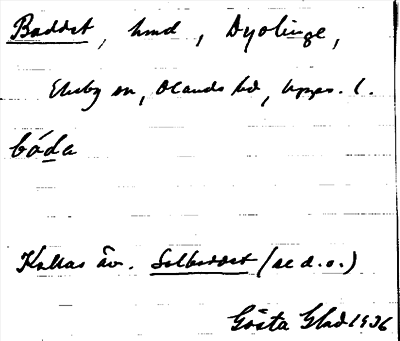 Baddet, hmd, Dyölinge,
Ekeby sn, Olands hd, Upps. l.
båda
Kallas äv. Solbaddet (se d.o.)
Gösta Glad 1936